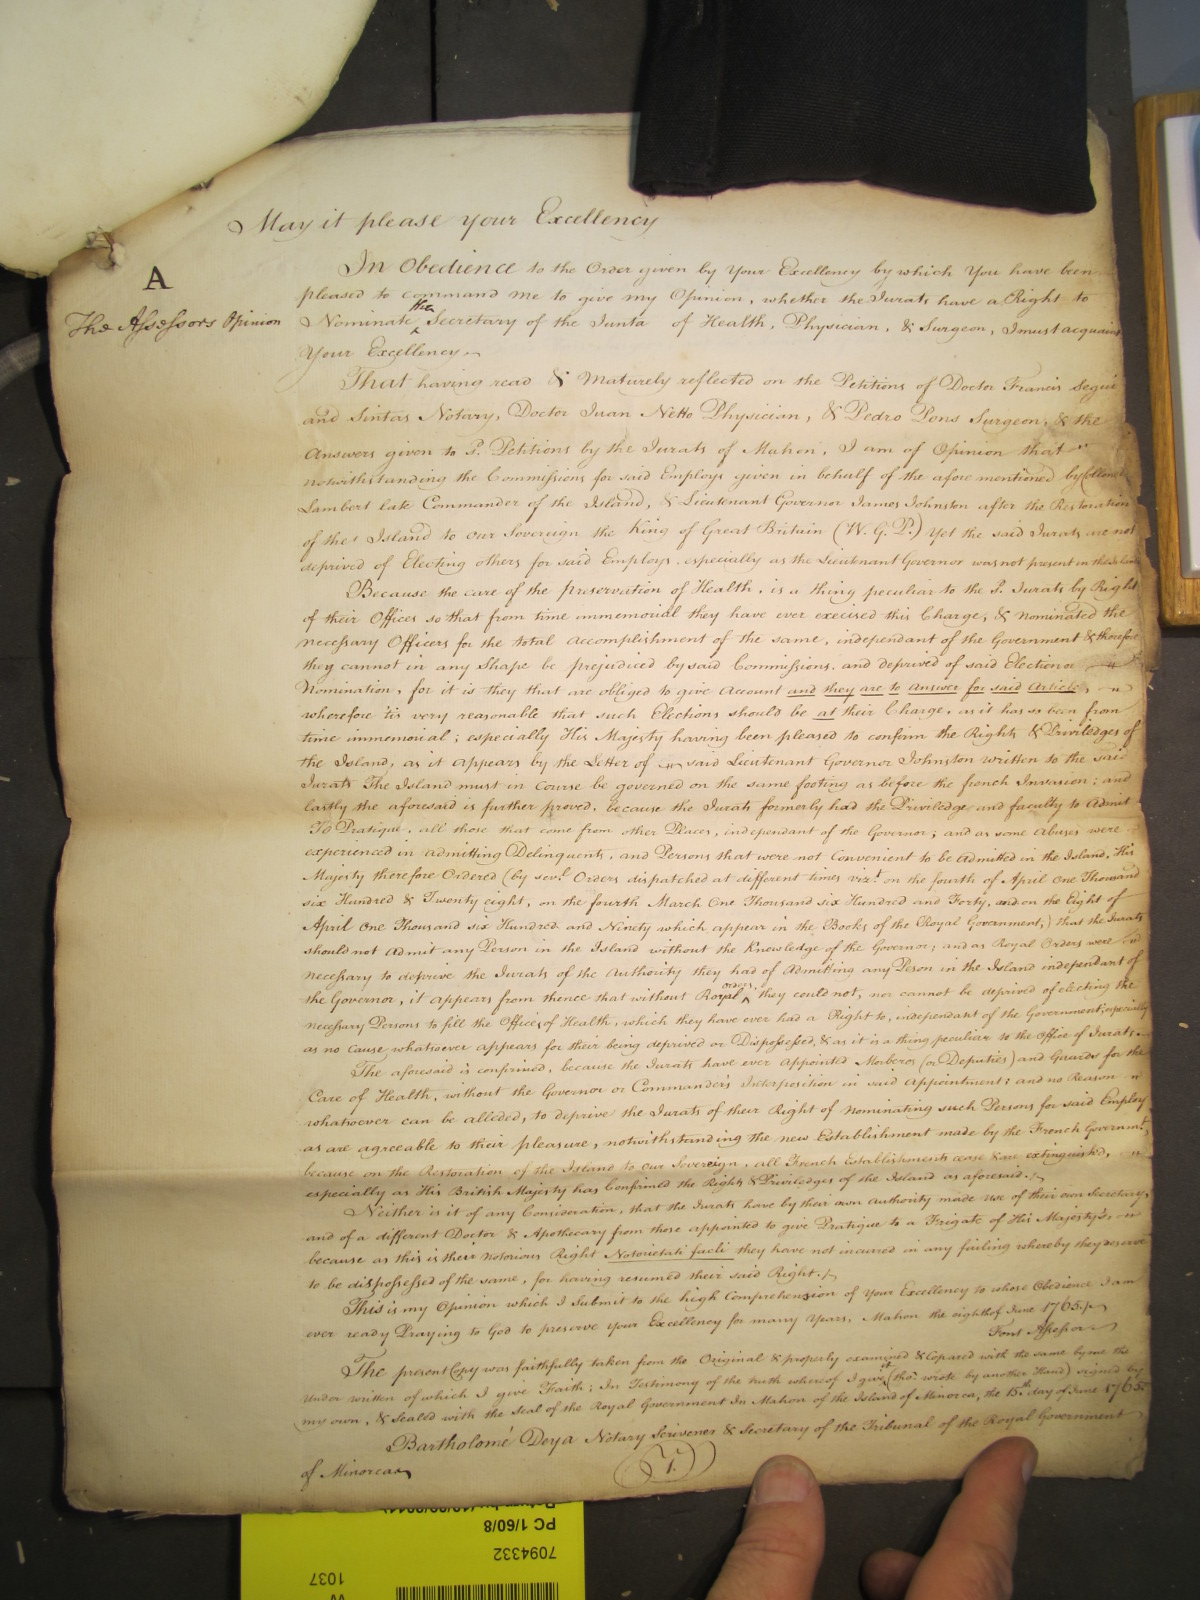 May it please your Excellency
A
The Assessors Opinion
In Obedience to the Order given by Your Excellency by which You have been
pleased to command me to give my Opinion, whether the Jurats have a Right to
Nominate the Secretary of the Junta of Health, Physician, & Surgeon, I must acquaint
Your Excellency
That having read & Maturely reflected on the Petitions of Doctor Francis Segui
and Sintas Notary, Doctor Juan Netto Physician, & Pedro Pons Surgeon, & the
Answers given to P. Petitions by the Jurats of Mahon, I am of Opinion that
notwithstanding the Commissions for said Employs given in behalf of the afore mentioned by Collonel
Lambert late Commander of the Island, & Lieutenant Governor James Johnston after the Restoration
of the Island to our Sovereign the King of Great Britain (W. G. P.) Yet the said Jurats are not
deprived of Electing others for said Employs, especially as the Lieutenant Governor was not present in the Island
Because the care of the preservation of Health, is a thing peculiar to the P. Jurats by Right
of their Offices so that from time immemorial they have ever execised this Charge, & nominated the
necessary Officers for the total accomplishment of the same, independant of the Government & therefore
they cannot in any Shape be prejudiced by said Commissions, and deprived of said Election or
Nomination, for it is they that are obliged to give Account and they are to answer for said Article,
wherefore 'tis very reasonable that such Elections should be at their Charge, as it has so been from
time immemorial; especially His Majesty having been pleased to confirm the Rights & Priviledges of
the Island, as it appears by the Letter of said Lieutenant Governor Johnston written to the said
Jurats The Island must in course be governed on the same footing as before the french Invasion; and
lastly the aforesaid is further proved, because the Jurats formerly had the Priviledge and faculty to Admit
To Pratique, all those that come from other Places, independant of the Governor; and as some Abuses were
experienced in admitting Delinquents, and Persons that were not Convenient to be Admitted in the Island, His
Majesty therefore Ordered (by sevl. Orders dispatched at different times vizt. on the fourth of April One Thousand
six Hundred & Twenty eight, on the fourth March One Thousand six Hundred and Forty, and on the Eight of
April One Thousand six Hundred and Ninety which appear in the Books of the Royal Government,) that the Jurats
should not Admit any Person in the Island without the Knowledge of the Governor; and as Royal Orders were
necessary to deprive the Jurats of the Authority they had of Admitting any Peson in the Island independant of
the Governor, it appears from thence that without Royal orders, they could not, nor cannot be deprived of electing the
necessary Persons to fill the Offices of Health, which they have ever had a Right to, independant of the Government; especially
as no cause whatsoever appears for their being deprived or Dispossessed, & as it is a thing peculiar to the Office of Jurats
The aforesaid is confirmed, because the Jurats have ever Appointed Morberos (or Deputies) and Guards for the
Care of Health, without the Governor or Commander's Interposition in said Appointment; and no Reason
whatsoever can be alleded, to deprive the Jurats of their Right of Nominating such Persons for said Employ
as are agreeable to their pleasure, notwithstanding the new Establishment made by the French Governmt,
because on the Restoration of the Island to our Sovereign, all French Establishments cease & are extinguished,
especially as His British Majesty has Confirmed the Rights & Priviledges of the Island as aforesaid.
Neither is it of any Consideration, that the Jurats have by their own Authority made use of their own Secretary,
and of a different Doctor & Apothecary from those appointed to give Pratique to a Frigate of His Majesty's,
because as this is their Notorious Right Notorietati facti they have not incured in any failing whereby they deserve
to be dispossessed of the same, for having resumed their said Right.
This is my Opinion which I Submit to the high Comprehension of Your Excellency to whose Obedience I am
ever ready Praying to God to preserve Your Excellency for many Years, Mahon the eighth of June 1765.
Font Assessor
The present Copy was faithfully taken from the Original & properly examined & Copared with the same by me the
Under written of which I give Faith; In Testimony of the truth whereof I give it (tho' wrote by another Hand) signed by
my own, & Sealed with the Seal of the Royal Government In Mahon of the Island of Minorca, the 15th day of June 1765
Bartholomé Deya Notary Scrivener & Secretary of the Tribunal of the Royal Government
of Minorca
PC 1/60/8
7094332
1037
W